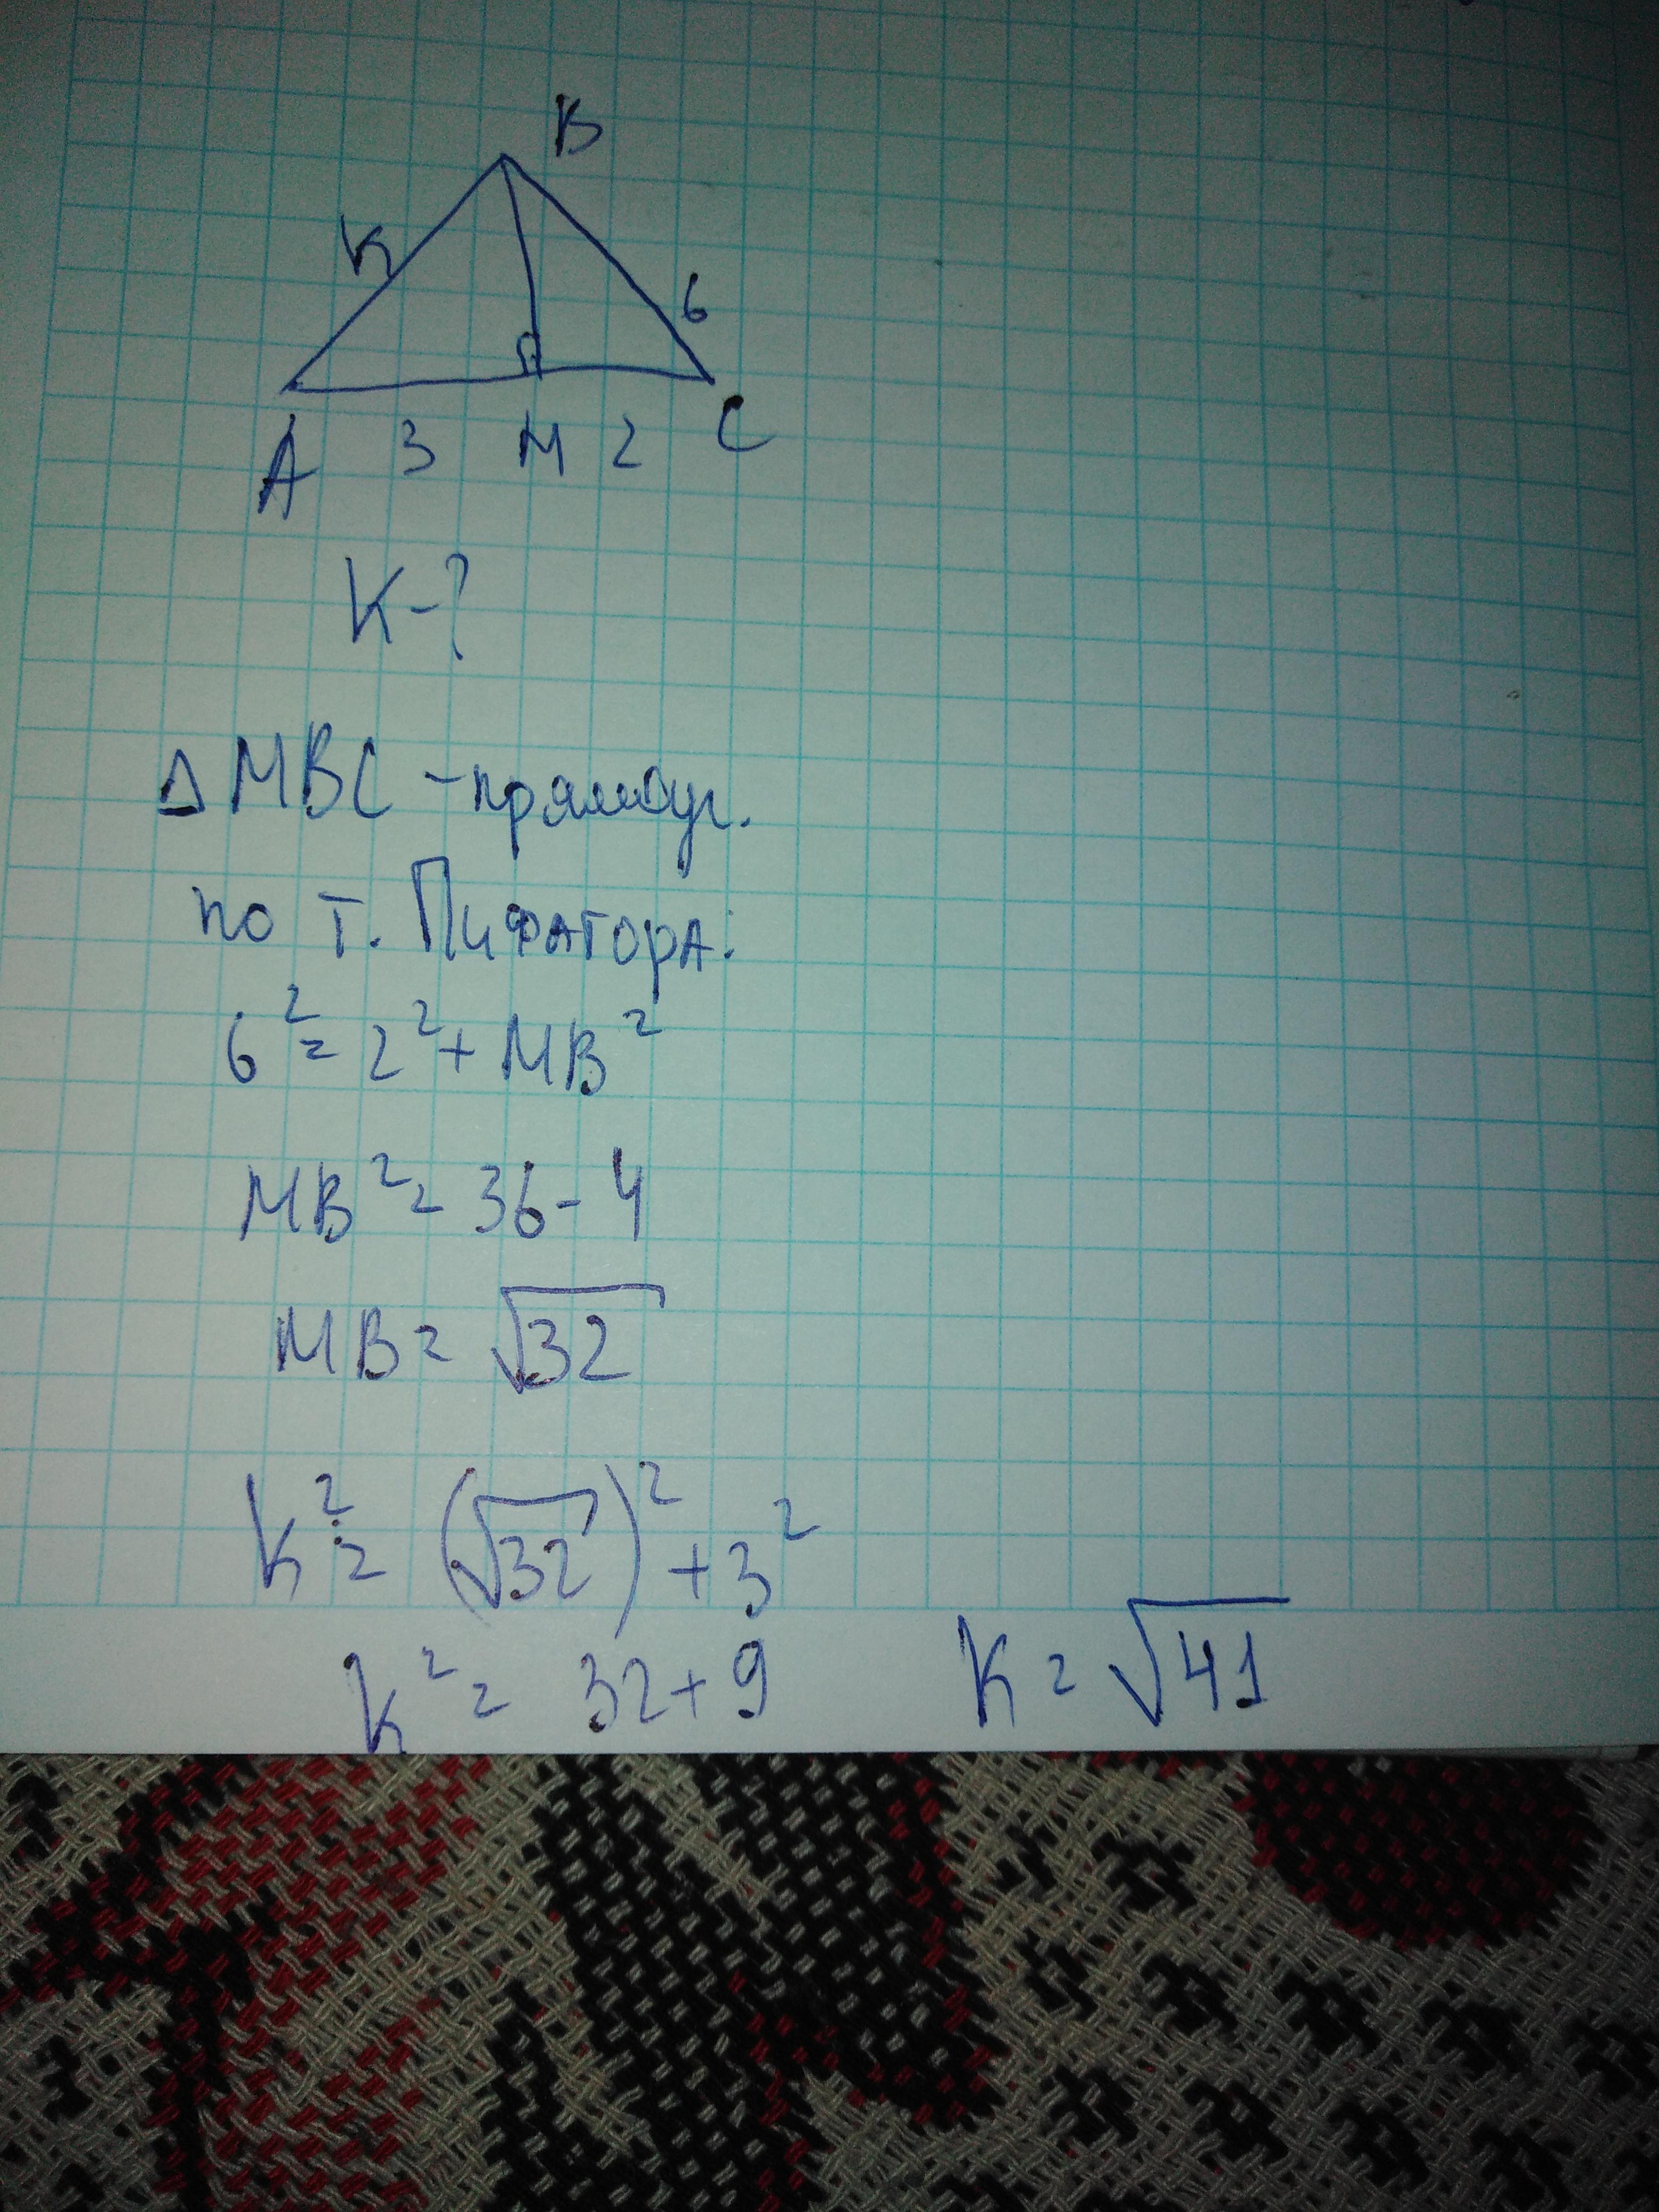 B
K
6
A 3 M 2 C
K-?
Δ MBC - прямоуг.
по т. Пифагора:
6² = 2² + MB²
MB² = 36 - 4
MB = √32
K² = (√32)² + 3²
K² = 32 + 9 K = √41